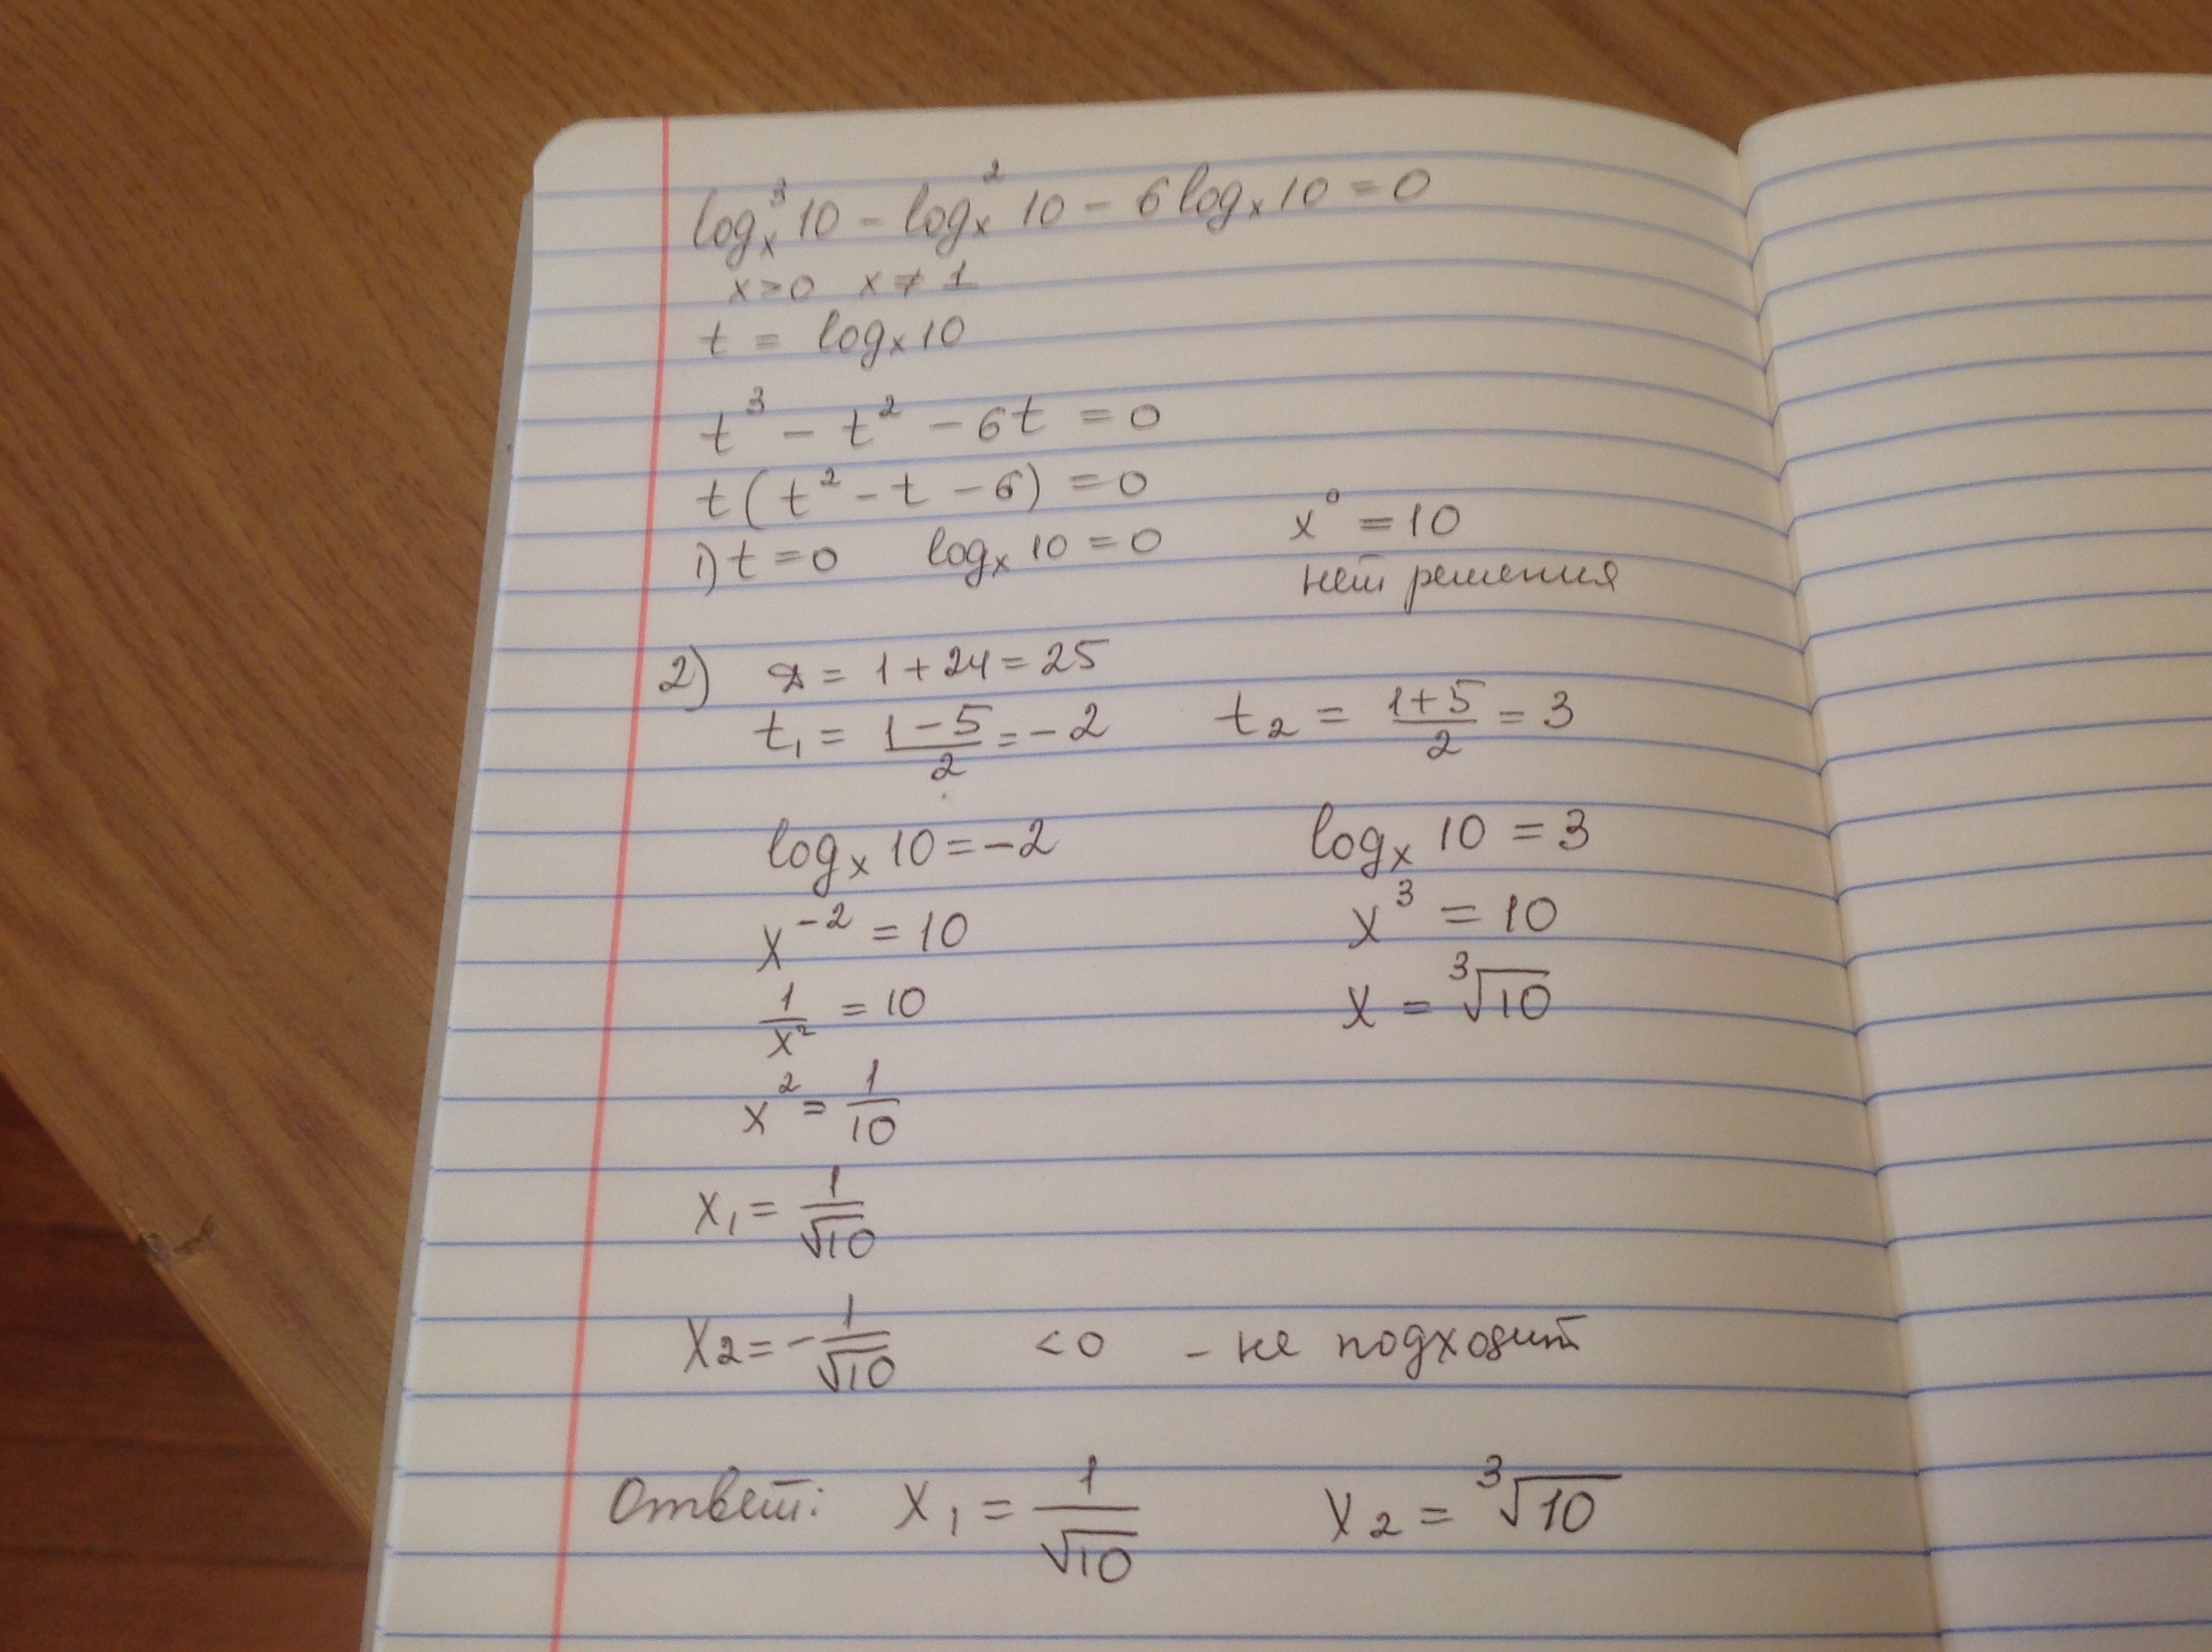 log³ₓ 10 - log²ₓ 10 - 6 logₓ 10 = 0
x > 0 x ≠ 1
t = logₓ 10
t³ - t² - 6t = 0
t(t² - t - 6) = 0
1) t = 0 logₓ 10 = 0 x⁰ = 10
нет решения
2) D = 1 + 24 = 25
t₁ = (1 - 5)/2 = -2 t₂ = (1 + 5)/2 = 3
logₓ 10 = -2 logₓ 10 = 3
x⁻² = 10 x³ = 10
1/x² = 10 x = ³√10
x² = 1/10
x₁ = 1/√10
x₂ = -1/√10 < 0 - не подходит
Ответ: x₁ = 1/√10 x₂ = ³√10